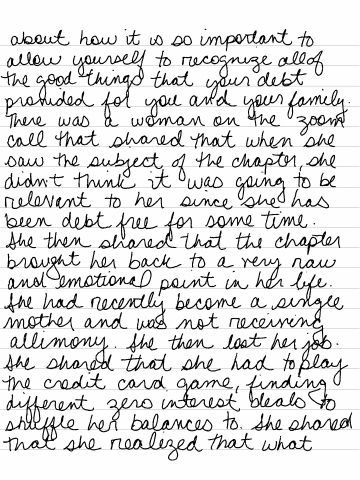 about how it is so important to
allow yourself to recognize all of
the good things that your debt
provided for you and your family.
There was a woman on the zoom
call that shared that when she
saw the subject of the chapter, she
didn't think it was going to be
relevant to her since she has
been debt free for some time.
She then shared that the chapter
brought her back to a very raw
and emotional point in her life.
She had recently become a single
mother and was not receiving
allimony. She then lost her job.
She shared that she had to play
the credit card game, finding
different zero interest deals to
shuffle her balances to. She shared
that she realized that what